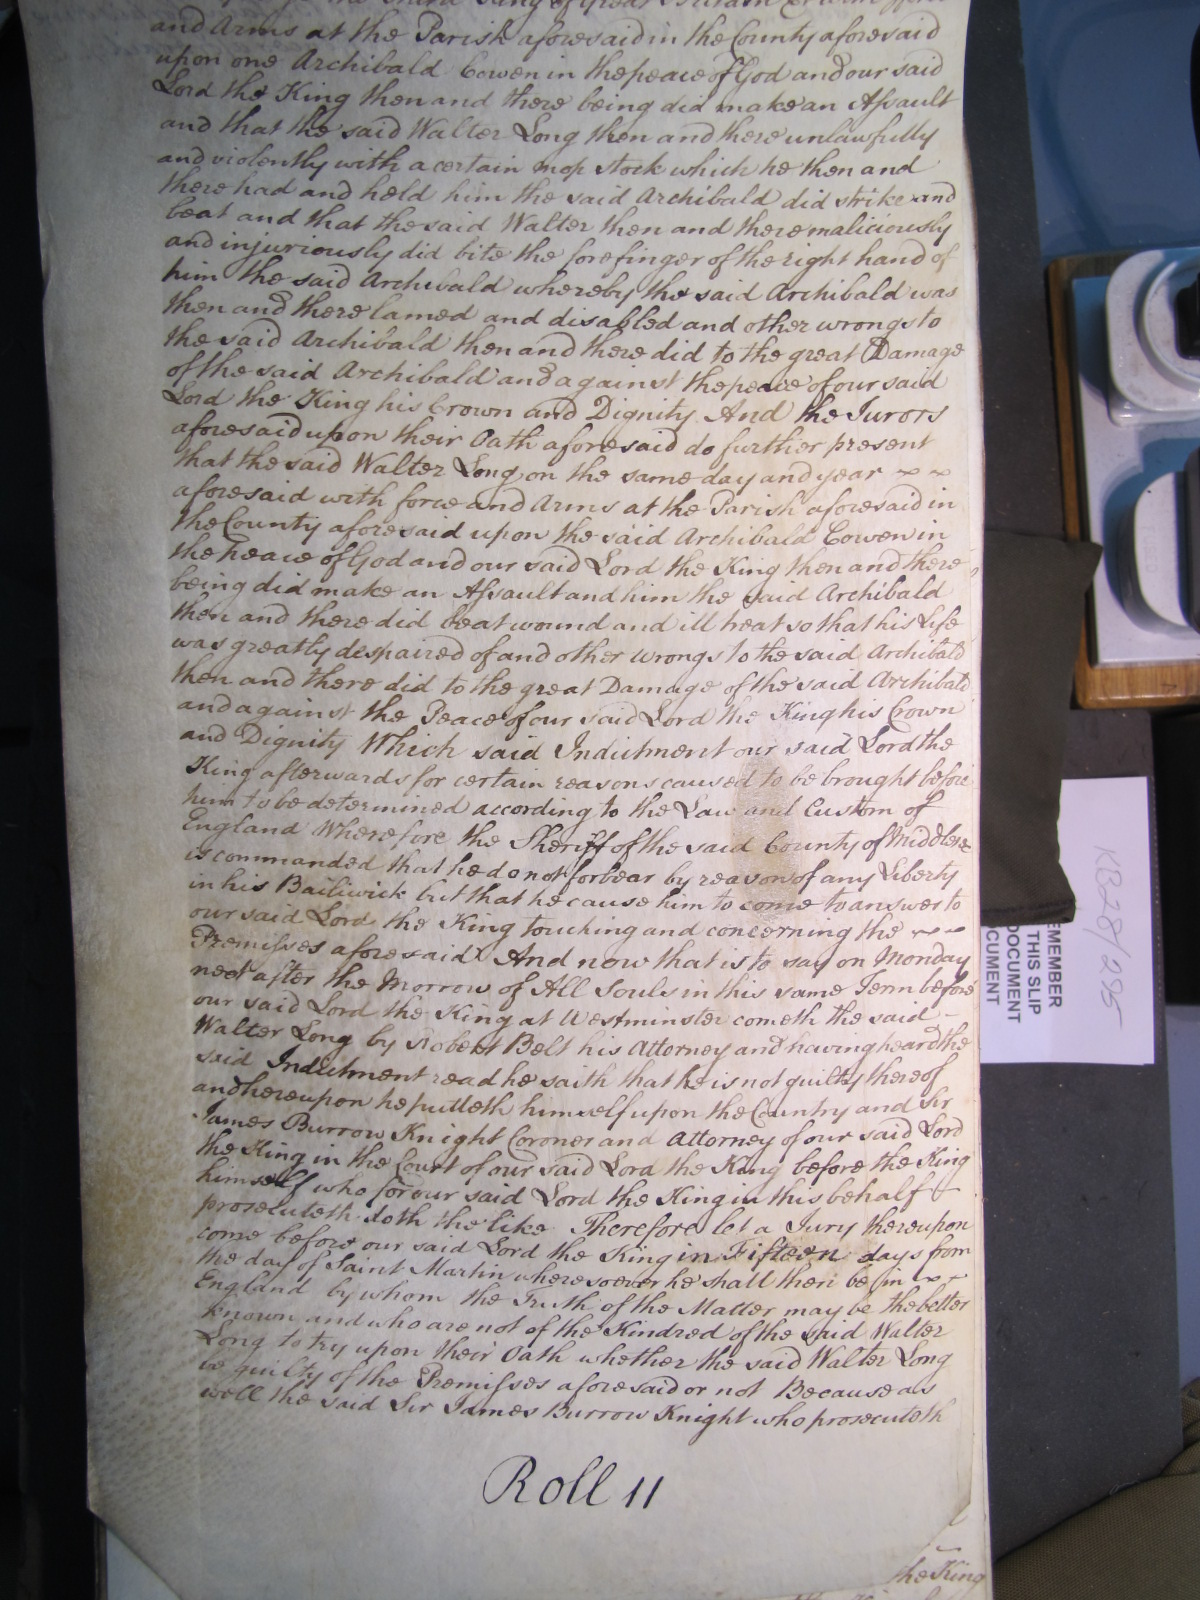 the Third King of Great Britain
and Arms at the Parish aforesaid in the County aforesaid
upon one Archibald Cowen in the peace of God and our said
Lord the King then and there being did make an Assault
and that the said Walter Long then and there unlawfully
and violently with a certain mop stock which he then and
there had and held him the said Archibald did strike and
beat and that the said Walter then and there maliciously
and injuriously did bite the forefinger of the right hand of
him the said Archibald whereby the said Archibald was
then and there lamed and disabled and other wrongs to
the said Archibald then and there did to the great Damage
of the said Archibald and against the peace of our said
Lord the King his Crown and Dignity And the Jurors
aforesaid upon their Oath aforesaid do further present
that the said Walter Long on the same day and year
aforesaid with force and Arms at the Parish aforesaid in
the County aforesaid upon the said Archibald Cowen in
the peace of God and our said Lord the King then and there
being did make an Assault and him the said Archibald
then and there did beat wound and ill treat so that his Life
was greatly despaired of and other wrongs to the said Archibald
then and there did to the great Damage of the said Archibald
and against the Peace of our said Lord the King his Crown
and Dignity Which said Indictment our said Lord the
King afterwards for certain reasons caused to be brought before
him to be determined according to the Law and Custom of
England Wherefore the Sheriff of the said County of Middlesex
is commanded that he do not forbear by reason of any Liberty
in his Bailiwick but that he cause him to come to answer to
our said Lord the King touching and concerning the
Premisses aforesaid And now that is to say on Monday
next after the Morrow of All Souls in this same Term before
our said Lord the King at Westminster cometh the said
Walter Long by Robert Belt his Attorney and having heard the
said Indictment read he saith that he is not guilty thereof
and hereupon he putteth himself upon the Country and Sir
James Burrow Knight Coroner and Attorney of our said Lord
the King in the Court of our said Lord the King before the King
himself who for our said Lord the King in this behalf
prosecuteth doth the like Therefore let a Jury thereupon
come before our said Lord the King in Fifteen days from
the day of Saint Martin wheresoever he shall then be in
England by whom the Truth of the Matter may be the better
known and who are not of the Kindred of the said Walter
Long to try upon their Oath whether the said Walter Long
be guilty of the Premisses aforesaid or not Because as
well the said Sir James Burrow Knight who prosecuteth
Roll 11
the King
KB28/295
EMEMBER
THIS SLIP
DOCUMENT
CUMENT